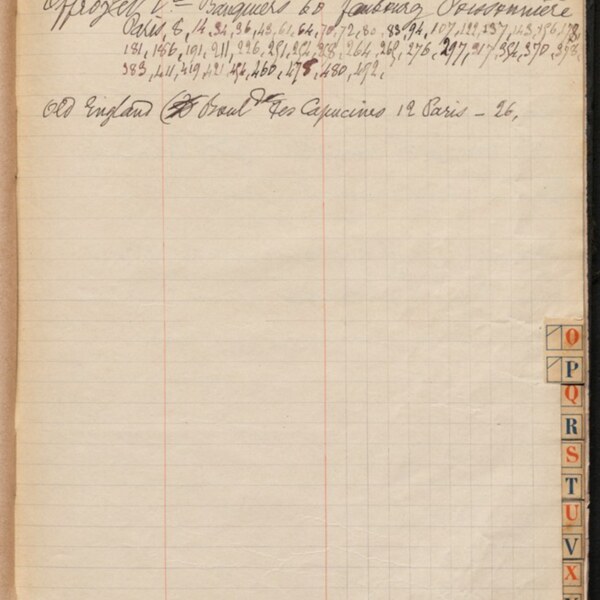 Offroy & Cie Banquiers 60 faubourg Poissonnière
Paris, 8, 14, 24, 36, 43, 61, 64, 70, 72, 80, 83, 94, 107, 122, 137, 143, 156, 173,
181, 186, 191, 211, 226, 251, 254, 258, 264, 269, 276, 297, 317, 354, 370, 373,
383, 411, 419, 421, 456, 460, 475, 480, 492,
Old England Boulde des Capucines 12 Paris – 26,
O
P
Q
R
S
T
U
V
X